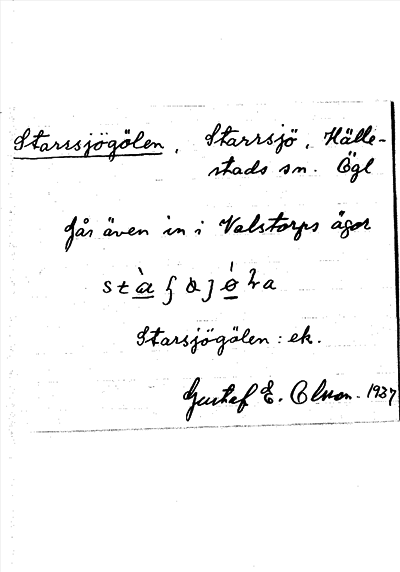 Starssjögölen, Starrsjö, Hälle-
stads sn. Ögl
Går även in i Valstorps ägor
Starsjögölen : ek.
Gustaf E. Olson. 1937